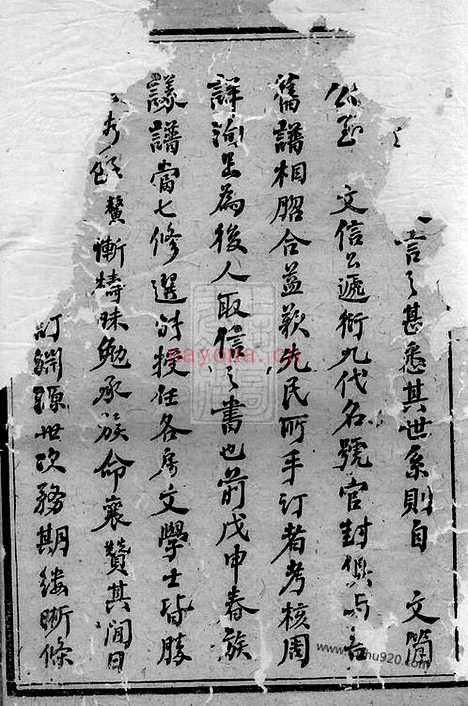 言之甚悉其世系則自 文簡
公至 文信公遞衍九代名號官封俱与吾
舊譜相脗合益歎先民所手訂者考核周
詳洵足為後人取信之書也前戊申春族
議譜當七修選賢授任各房文學士皆勝
鰲慚檮昧勉承族命襄贊其間日
訂淵源世次務期縷晰條
nayona.cn
www.shu920.com